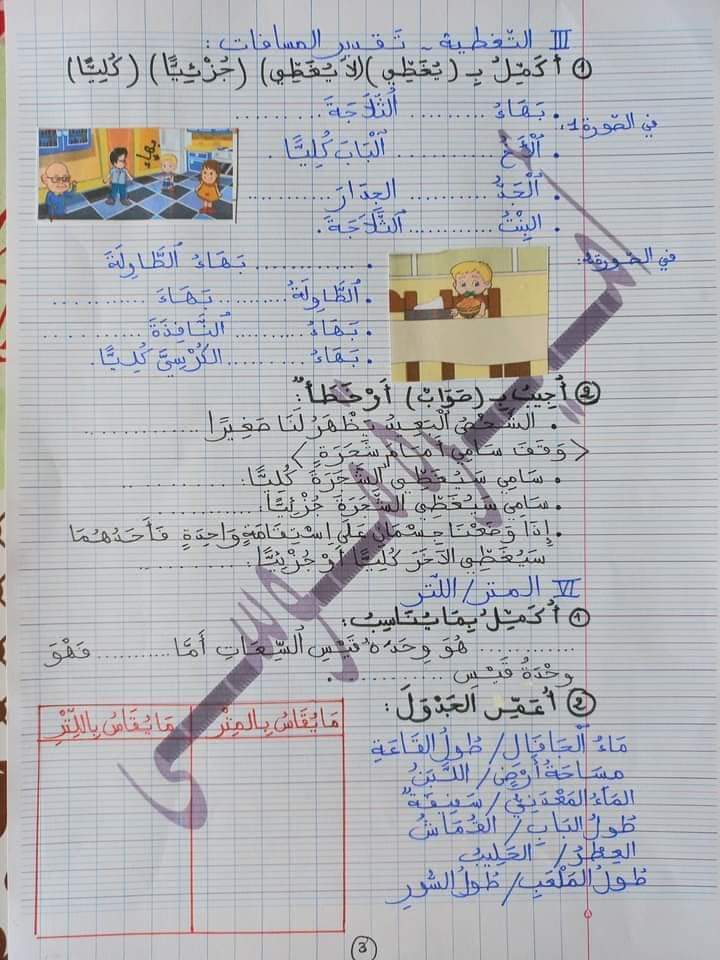 III التغطية - تقدير المسافات:
① أُكَمِلُ بِـ (يُغَطِّي)(لَا يُغَطِّي) (جُزْئِيًّا) (كُلِيًّا)
في الصّورة 1:
. بَهَاءُ .......... اَلثَّلَّاجَةَ ............
. اَلْأَخُ .......... اَلْبَابَ كُلِيًّا .
. اَلْجَدُّ .......... الجِدَارَ ............
. البِنْتُ .......... اَلثَّلَّاجَةَ .
بهاء
في الصّورة 2:
. ............ بَهَاءُ الطَّاوِلَةَ
. الطَّاوِلَةُ .......... بَهَاءَ ............
. بَهَاءُ .......... النَّافِذَةَ ............
. بَهَاءُ .......... الكُرْسِيَّ كُلِيًّا.
② أُجِيبُ بِـ (صَوَابٌ) أَوْ خَطَأٌ:
. الشَّخْصُ الْبَعِيدُ يَظْهَرُ لَنَا صَغِيرًا ............
< وَقَفَ سَامِي أَمَامَ شَجَرَةٍ >
. سَامِي سَيُغَطِّي الشَّجَرَةَ كُلِيًّا: ............
. سَامِي سَيُغَطِّي الشَّجَرَةَ جُزْئِيًّا: ............
. إِذَا وَضَعْنَا جِسْمَانِ عَلَى اِسْتِقَامَةٍ وَاحِدَةٍ فَأَحَدُهُمَا
سَيُغَطِّي الآخَرَ كُلِيًّا أَوْ جُزْئِيًّا: ............
VI المتر/ اللّتر
① أُكَمِلُ بِمَا يُنَاسِبُ:
............ هُوَ وِحْدَةُ قَيْسِ السِّعَاتِ أَمَّا .......... فَهْوَ
وِحْدَةُ قَيْسِ ............ .
② أُعَمِّرُ الجَدْوَلَ:
مَا يُقَاسُ بِالمِتْرِ
مَا يُقَاسُ بِاللِّتْرِ
مَاءُ / طُولُ القَاعَةِ
مِسَاحَةُ أَرْضٍ / اللَّبَنُ
المَاءُ المَعْدَنِيُّ / سَفِينَةٌ
طُولُ البَابِ / القُمَاشُ
العِطْرُ / الحَلِيبُ
طُولُ المَلْعَبِ / طُولُ السُّورِ
3